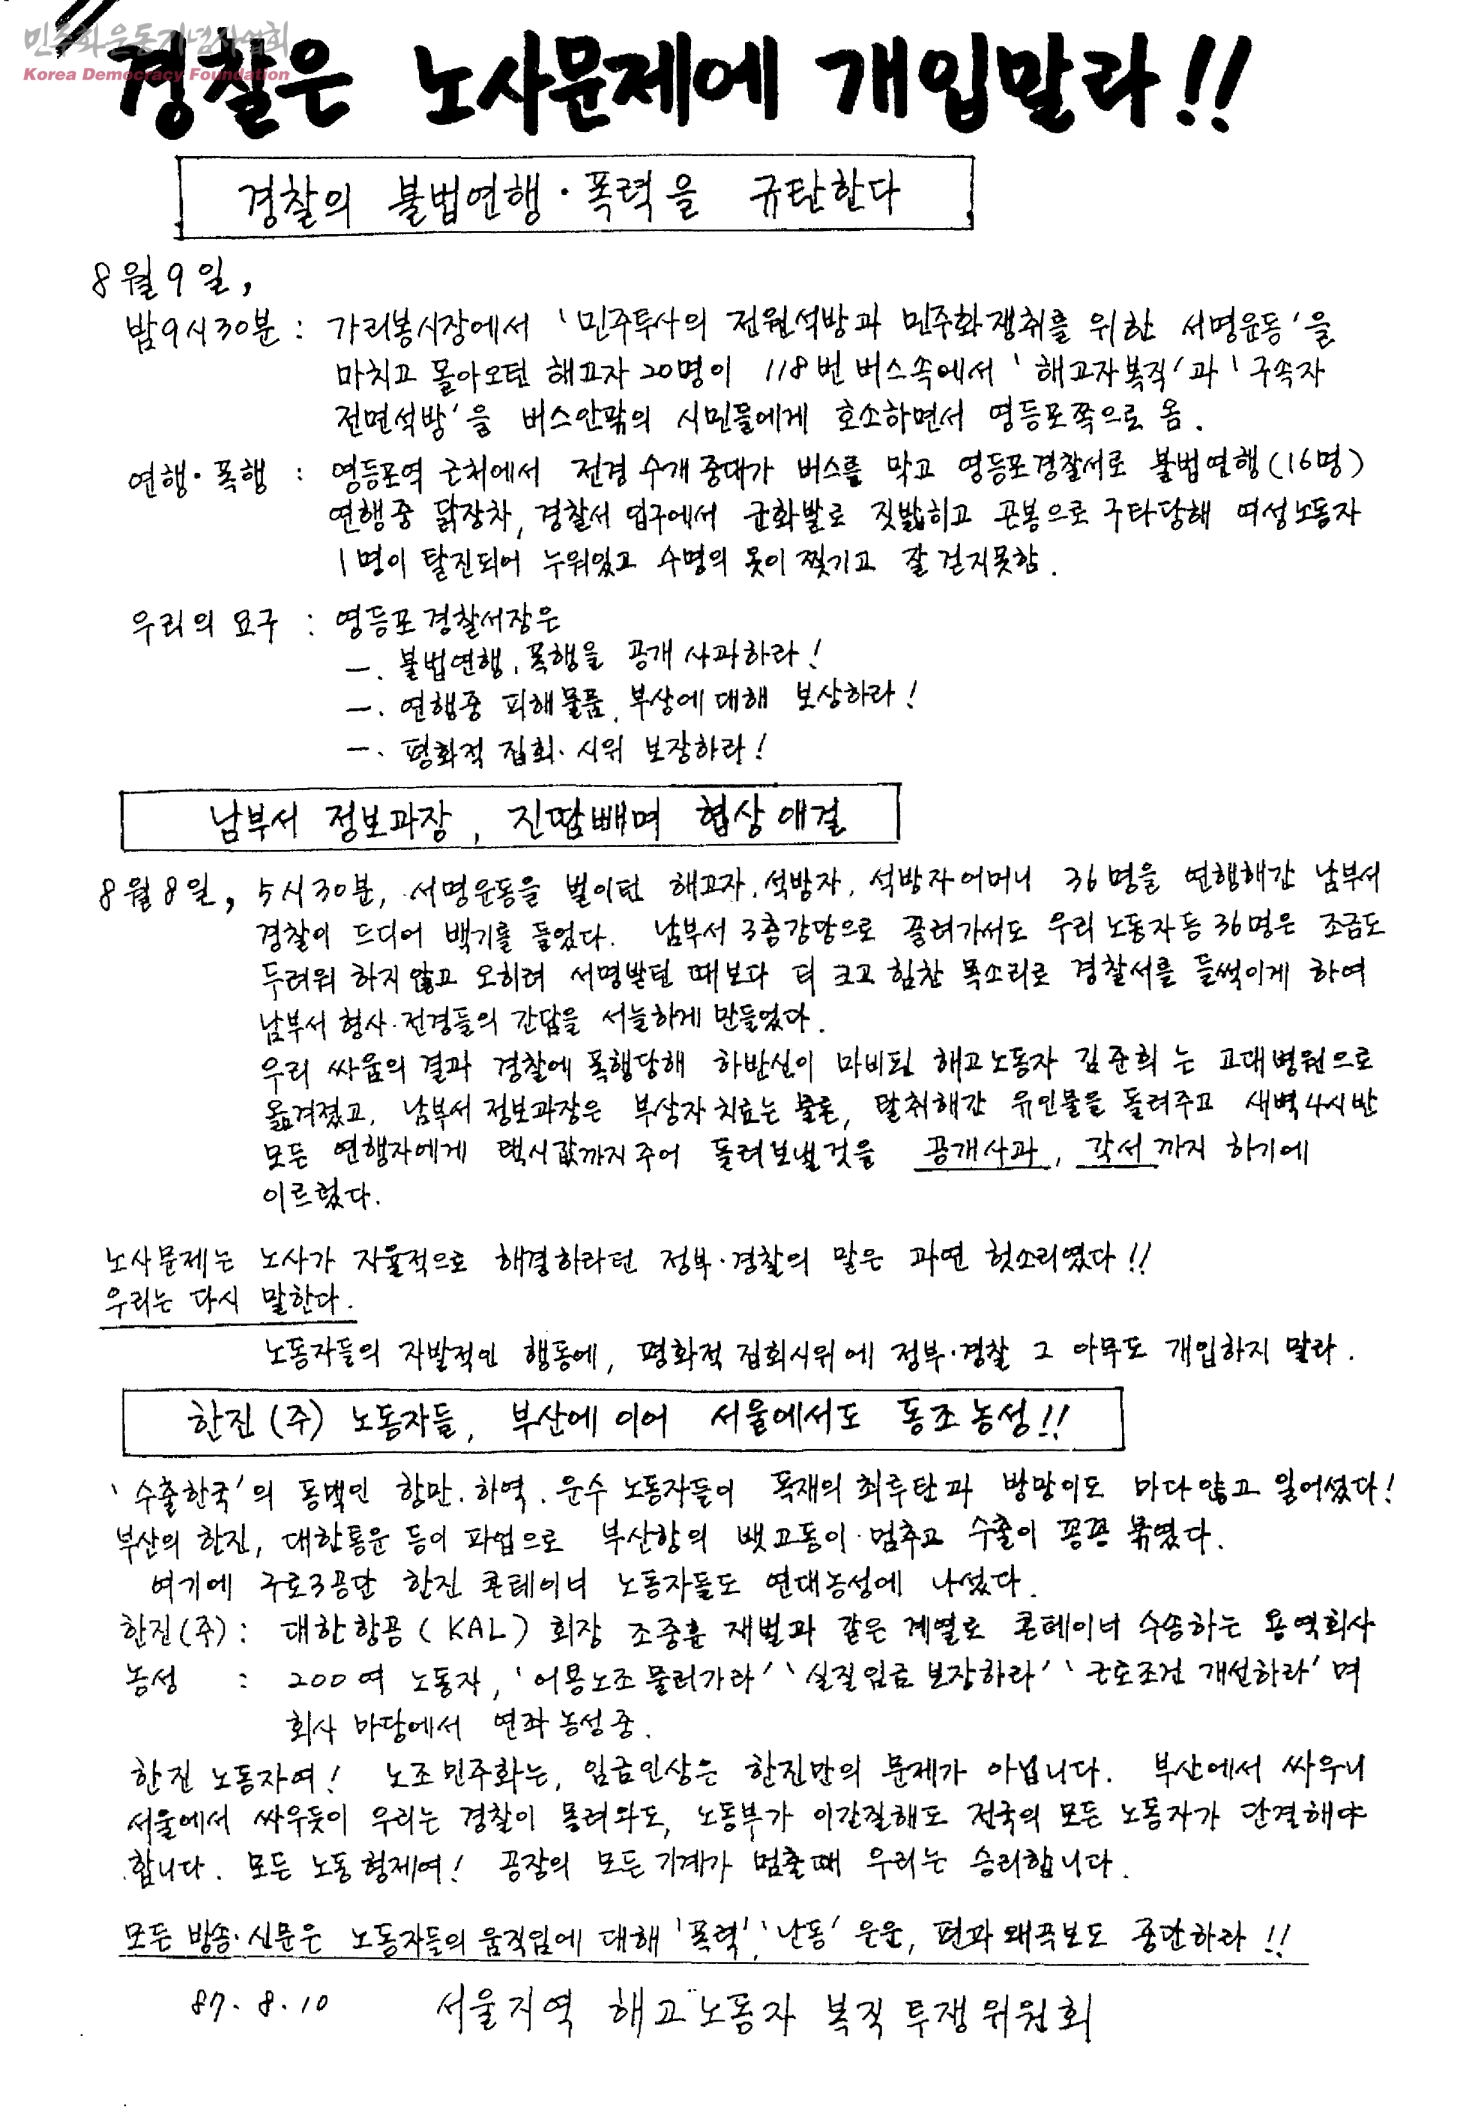 민주화운동기념사업회
Korea Democracy Foundation
경찰은 노사문제에 개입말라!!
경찰의 불법연행·폭력을 규탄한다
8월9일,
밤9시30분 : 가리봉시장에서 '민주투사의 전원석방과 민주화쟁취를 위한 서명운동'을
마치고 몰아오던 해고자 20명이 118번 버스속에서 '해고자복직'과 '구속자
전면석방'을 버스안팎의 시민들에게 호소하면서 영등포쪽으로 옴.
연행·폭행 : 영등포역 근처에서 전경 수개중대가 버스를 막고 영등포경찰서로 불법연행(16명)
연행중 닭장차, 경찰서 입구에서 군화발로 짓밟히고 곤봉으로 구타당해 여성노동자
1명이 탈진되어 누워있고 수명의 옷이 찢기고 잘 걷지못함.
우리의 요구 : 영등포 경찰서장은
一. 불법연행, 폭행을 공개 사과하라!
一. 연행중 피해물품, 부상에 대해 보상하라!
一. 평화적 집회·시위 보장하라!
남부서 정보과장, 진땀빼며 협상 애걸
8월8일, 5시30분, 서명운동을 벌이던 해고자, 석방자, 석방자어머니 36명을 연행해간 남부서
경찰이 드디어 백기를 들었다. 남부서 3층강당으로 끌려가서도 우리 노동자등 36명은 조금도
두려워 하지않고 오히려 서명받던 때보다 더 크고 힘찬 목소리로 경찰서를 들썩이게 하여
남부서 형사·전경들의 간담을 서늘하게 만들었다.
우리 싸움의 결과 경찰에 폭행당해 하반신이 마비된 해고노동자 김준희는 고대병원으로
옮겨졌고, 남부서 정보과장은 부상자 치료는 물론, 탈취해간 유인물을 돌려주고 새벽4시반
모든 연행자에게 택시값까지주어 돌려보낼것을 공개사과, 각서까지 하기에
이르렀다.
노사문제는 노사가 자율적으로 해결하라던 정부·경찰의 말은 과연 헛소리였다!!
우리는 다시 말한다.
노동자들의 자발적인 행동에, 평화적 집회시위에 정부·경찰 그 아무도 개입하지 말라.
한진(주) 노동자들, 부산에 이어 서울에서도 동조농성!!
'수출한국'의 동맥인 항만·하역·운수 노동자들이 독재의 최루탄과 방망이도 마다않고 일어섰다!
부산의 한진, 대한통운 등이 파업으로 부산항의 뱃고동이 멈추고 수출이 꽁꽁 묶였다.
여기에 구로3공단 한진 콘테이너 노동자들도 연대농성에 나섰다.
한진(주): 대한항공(KAL) 회장 조중훈 재벌과 같은 계열로 콘테이너 수송하는 용역회사
농성 : 200여 노동자, '어용노조 물러가라' '실질임금 보장하라' '근로조건 개선하라'며
회사 마당에서 연좌농성중.
한진 노동자여! 노조민주화는, 임금인상은 한진만의 문제가 아닙니다. 부산에서 싸우니
서울에서 싸우듯이 우리는 경찰이 몰려와도, 노동부가 이간질해도 전국의 모든 노동자가 단결해야
합니다. 모든 노동형제여! 공장의 모든 기계가 멈출때 우리는 승리합니다.
모든 방송·신문은 노동자들의 움직임에 대해 '폭력', '난동' 운운, 편파 왜곡보도 중단하라!!
87.8.10 서울지역 해고노동자 복직투쟁위원회